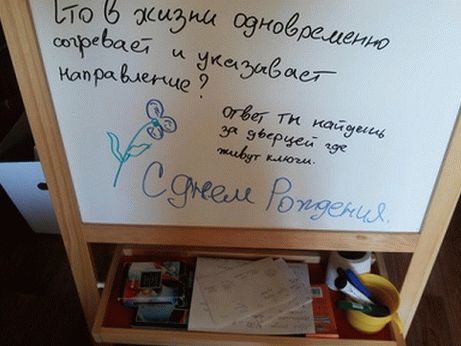 Что в жизни одновременно
согревает и указывает
направление?
ответ ты найдешь
за дверцей где
живут ключи.
С Днем Рождения.